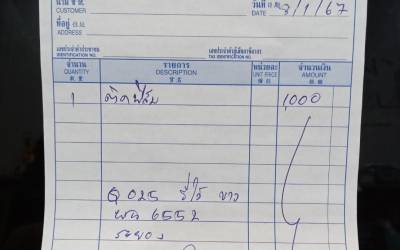 นาม ช.ห.
CUSTOMER
วันที่
DATE 8/1/67
ที่อยู่
ADDRESS
เลขประจำตัวประชาชน
IDENTIFICATION NO.
เลขประจำตัวผู้เสียภาษีอากร
TAX IDENTIFICATION NO.
จำนวน รายการ หน่วยละ จำนวนเงิน
QUANTITY DESCRIPTION UNIT PRICE AMOUNT
1 ติดฟิล์ม 1,000
Q025 รีโว่ ขาว
ผต 6552
ระยอง